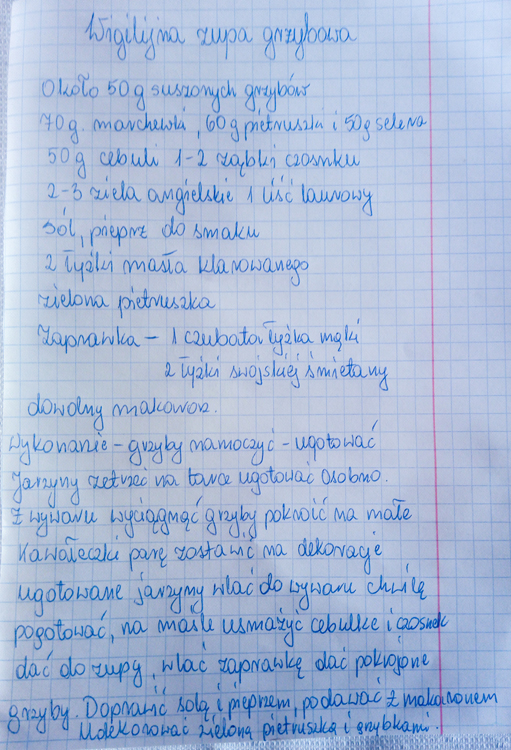 Wigilijna zupa grzybowa
Około 50g suszonych grzybów
70g. marchewki, 60g pietruszki i 50g selera
50g cebuli 1-2 ząbki czosnku
2-3 ziela angielskie 1 liść laurowy
sól, pieprz do smaku
2 łyżki masła klarowanego
zielona pietruszka
Zaprawka - 1 czubata łyżka mąki
2 łyżki swojskiej śmietany
dowolny makaron.
Wykonanie - grzyby namoczyć - ugotować
Jarzyny zetrzeć na tarce ugotować osobno.
Z wywaru wyciągnąć grzyby pokroić na małe
kawałeczki parę zostawić na dekorację
ugotowane jarzyny wlać do wywaru chwilę
pogotować, na maśle usmażyć cebulkę i czosnek
dać do zupy, wlać zaprawkę dać pokrojone
grzyby. Doprawić solą i pieprzem, podawać z makaronem
Udekorować zieloną pietruszką i grzybkami.